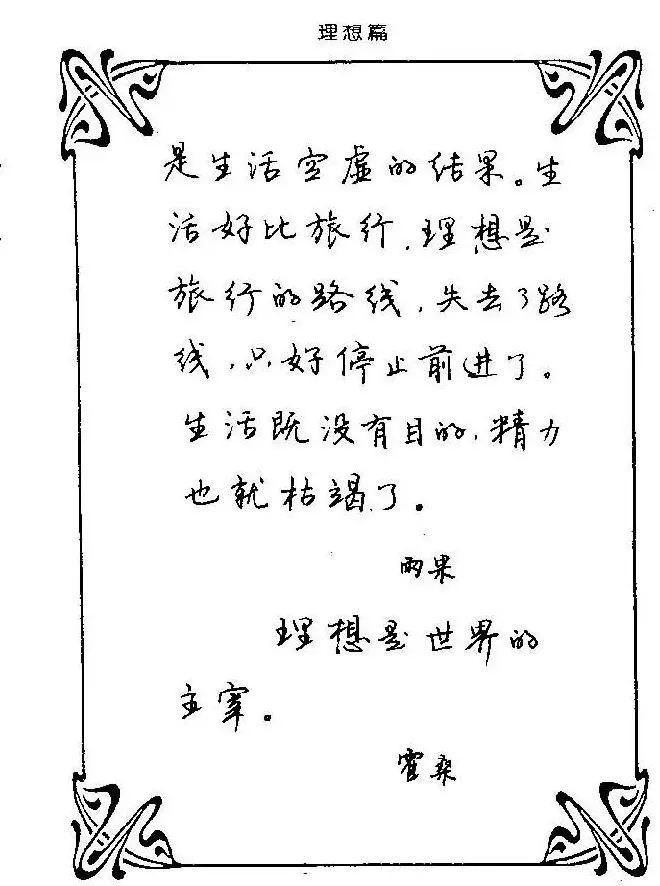 理想篇
是生活空虚的结果。生
活好比旅行,理想是
旅行的路线,失去了路
线,只好停止前进了。
生活既没有目的,精力
也就枯竭了。
雨果
理想是世界的
主宰。
霍桑